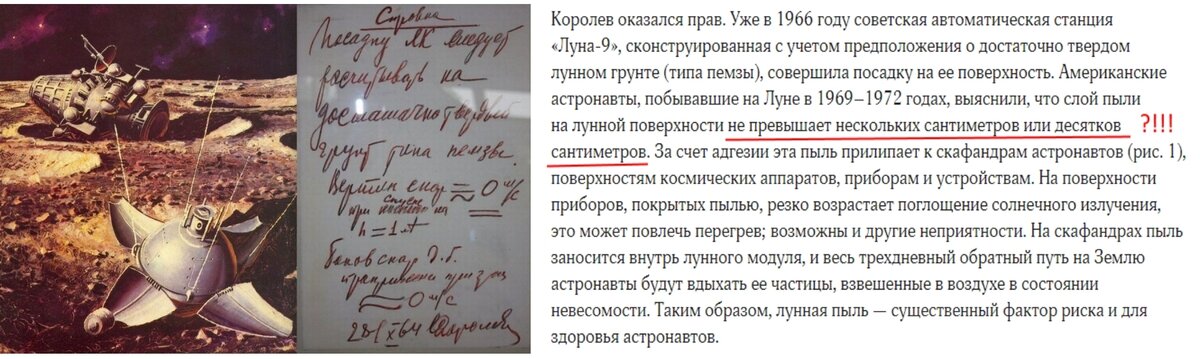 Справка
Посадку ЛК следует
расчитывать на
достаточно твердый
грунт типа пемзы.
Вертик скор ≈ 0 м/с
при спуске на
h = 1 м
Боков скор д.б.
при
≈ 0 м/с
28/X 64 СКоролев
Королев оказался прав. Уже в 1966 году советская автоматическая станция
«Луна-9», сконструированная с учетом предположения о достаточно твердом
лунном грунте (типа пемзы), совершила посадку на ее поверхность. Американские
астронавты, побывавшие на Луне в 1969–1972 годах, выяснили, что слой пыли
на лунной поверхности не превышает нескольких сантиметров или десятков ?!!!
сантиметров. За счет адгезии эта пыль прилипает к скафандрам астронавтов (рис. 1),
поверхностям космических аппаратов, приборам и устройствам. На поверхности
приборов, покрытых пылью, резко возрастает поглощение солнечного излучения,
это может повлечь перегрев; возможны и другие неприятности. На скафандрах пыль
заносится внутрь лунного модуля, и весь трехдневный обратный путь на Землю
астронавты будут вдыхать ее частицы, взвешенные в воздухе в состоянии
невесомости. Таким образом, лунная пыль — существенный фактор риска и для
здоровья астронавтов.